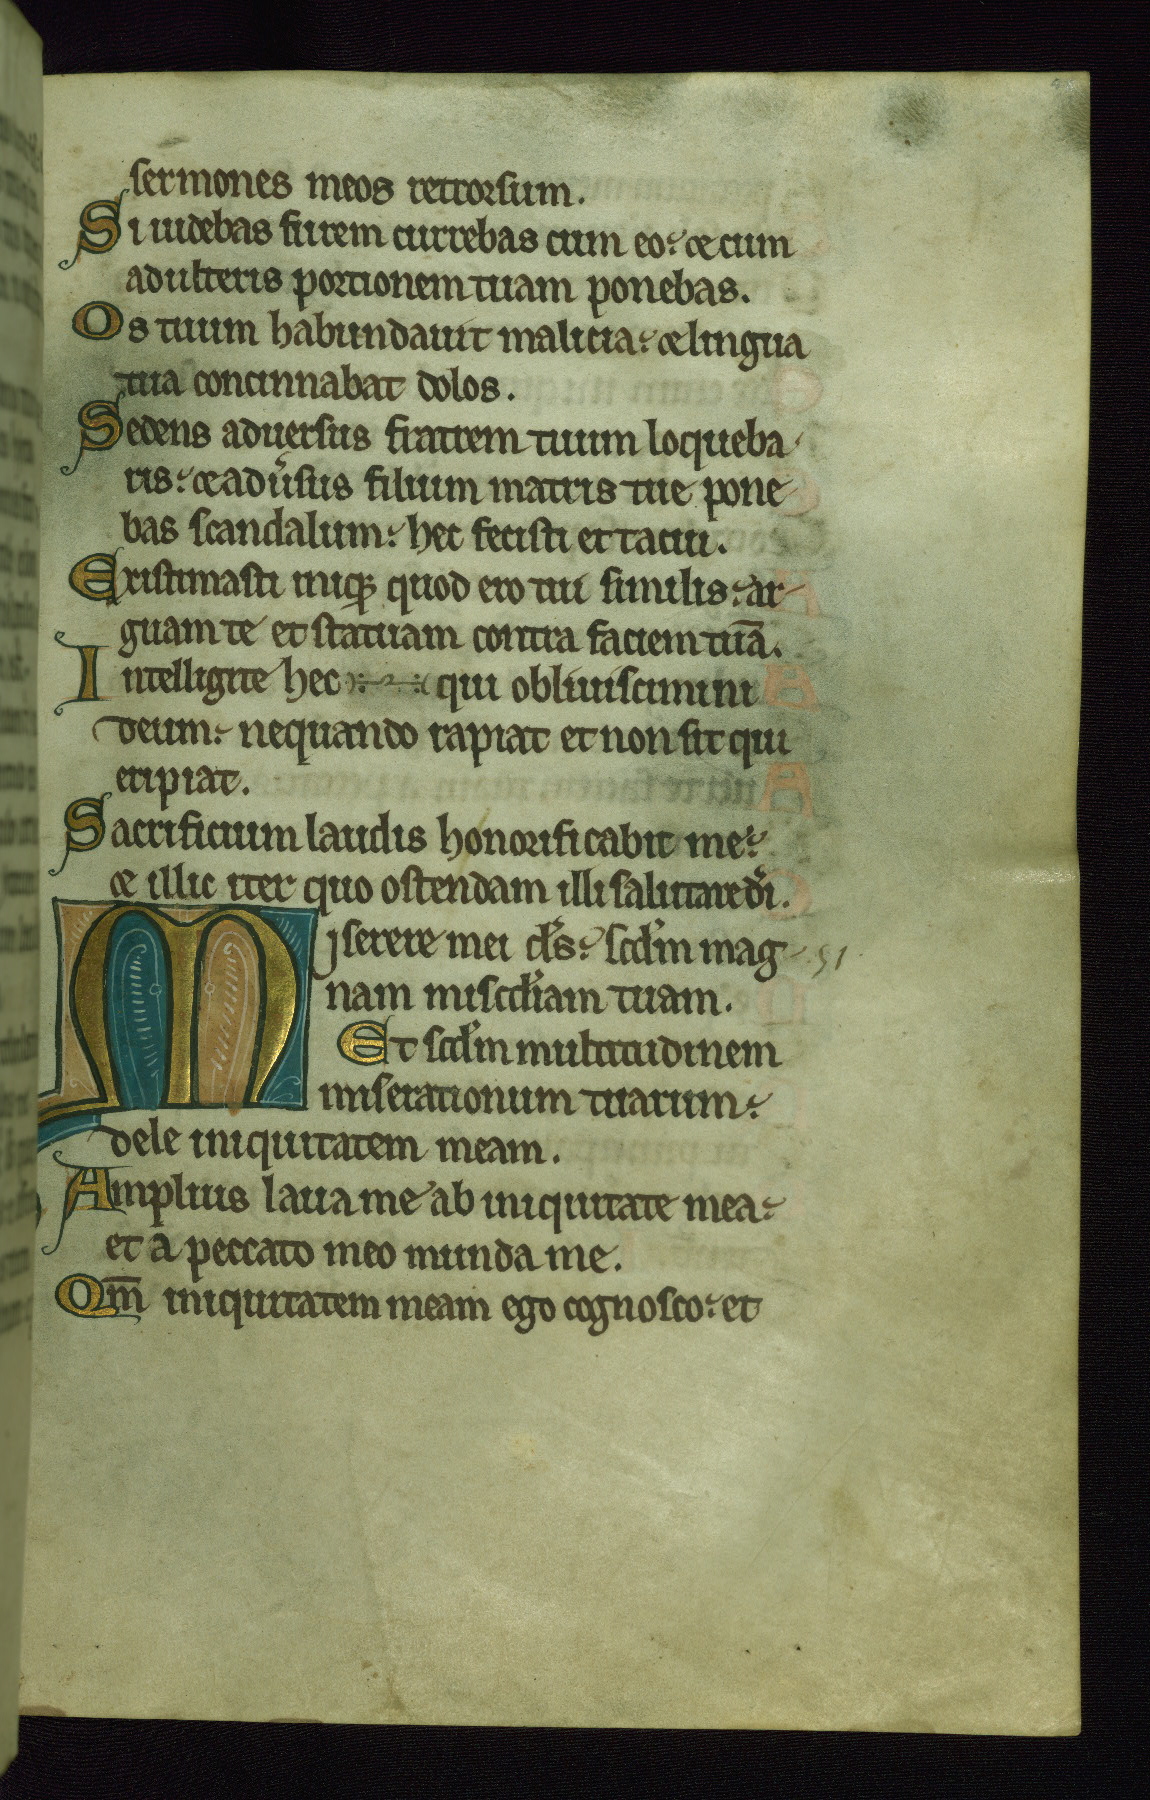 sermones meos retrorsum.
Si uidebas furem currebas cum eo: & cum
adulteris portionem tuam ponebas.
Os tuum habundauit malicia: & lingua
tua concinnabat dolos.
Sedens aduersus fratrem tuum loqueba
ris: & adu̾sus filium matris tue pone
bas scandalum: hec fecisti et tacui.
Existimasti iniq; quod ero tui similis: ar
guam te et statuam contra faciem tuā.
Intelligite hec qui obliuiscimini
deum: nequando rapiat et non sit qui
eripiat.
Sacrificium laudis honorificabit me:
& illic iter quo ostendam illi salutare dī.
Miserere mei ds̄: scdm̄ mag 51
nam miscd̄iam tuam.
Et scdm̄ multitudinem
miserationum tuarum:
dele iniquitatem meam.
Amplius laua me ab iniquitate mea:
et a peccato meo munda me.
Qm̄ iniquitatem meam ego cognosco: et